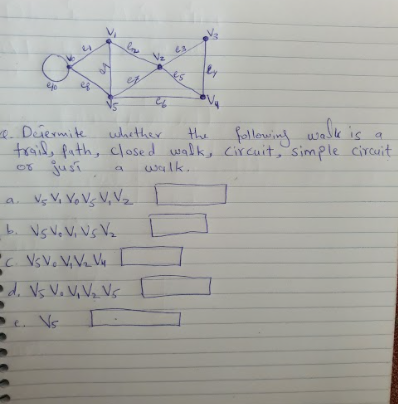 V1
V3
e1
e2
e3
V
V2
e9
e4
e7
e5
e10
e8
V5
e6
V4
e. Determite whether the following walk is a
trail, path, closed walk, circuit, simple circuit
or just a walk.
a. V5 V1 V0 V5 V1 V2
b. V5 V0 V1 V5 V2
c. V5 V0 V1 V2 V4
d. V5 V0 V1 V2 V5
e. V5